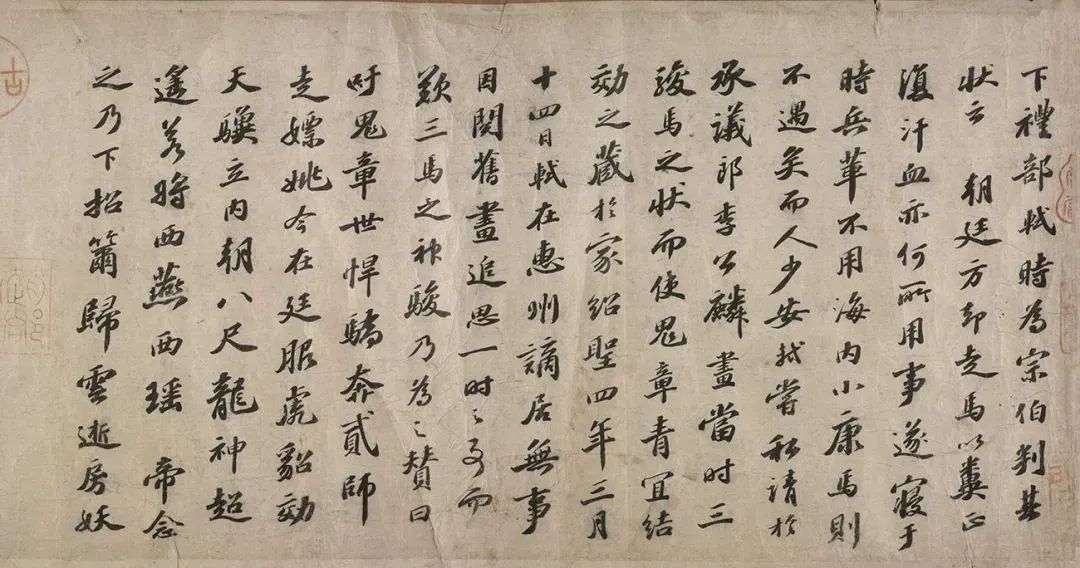 下禮部軾時為宗伯判其
狀云 朝廷方却走馬以糞正
復汗血亦何所用事遂寢于
時兵革不用海内小康馬則
不遇矣而人少安軾嘗私請於
承議郎李公麟畫當時三
駿馬之狀而使鬼章青宜結
効之藏於家紹聖四年三月
十四日軾在惠州謫居無事
因閱舊畫追思一時之事而
歎三馬之神駿乃為之贊曰
吁鬼章世悍驕奔貳師
走嫖姚今在廷服虎貂効
天驥立内朝八尺龍神超
遙若將西燕西瑤 帝念
之乃下招籋歸雲逝房妖
古